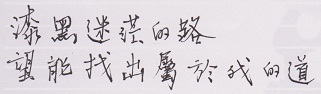 漆黑迷茫的路
望能找出屬於我的道